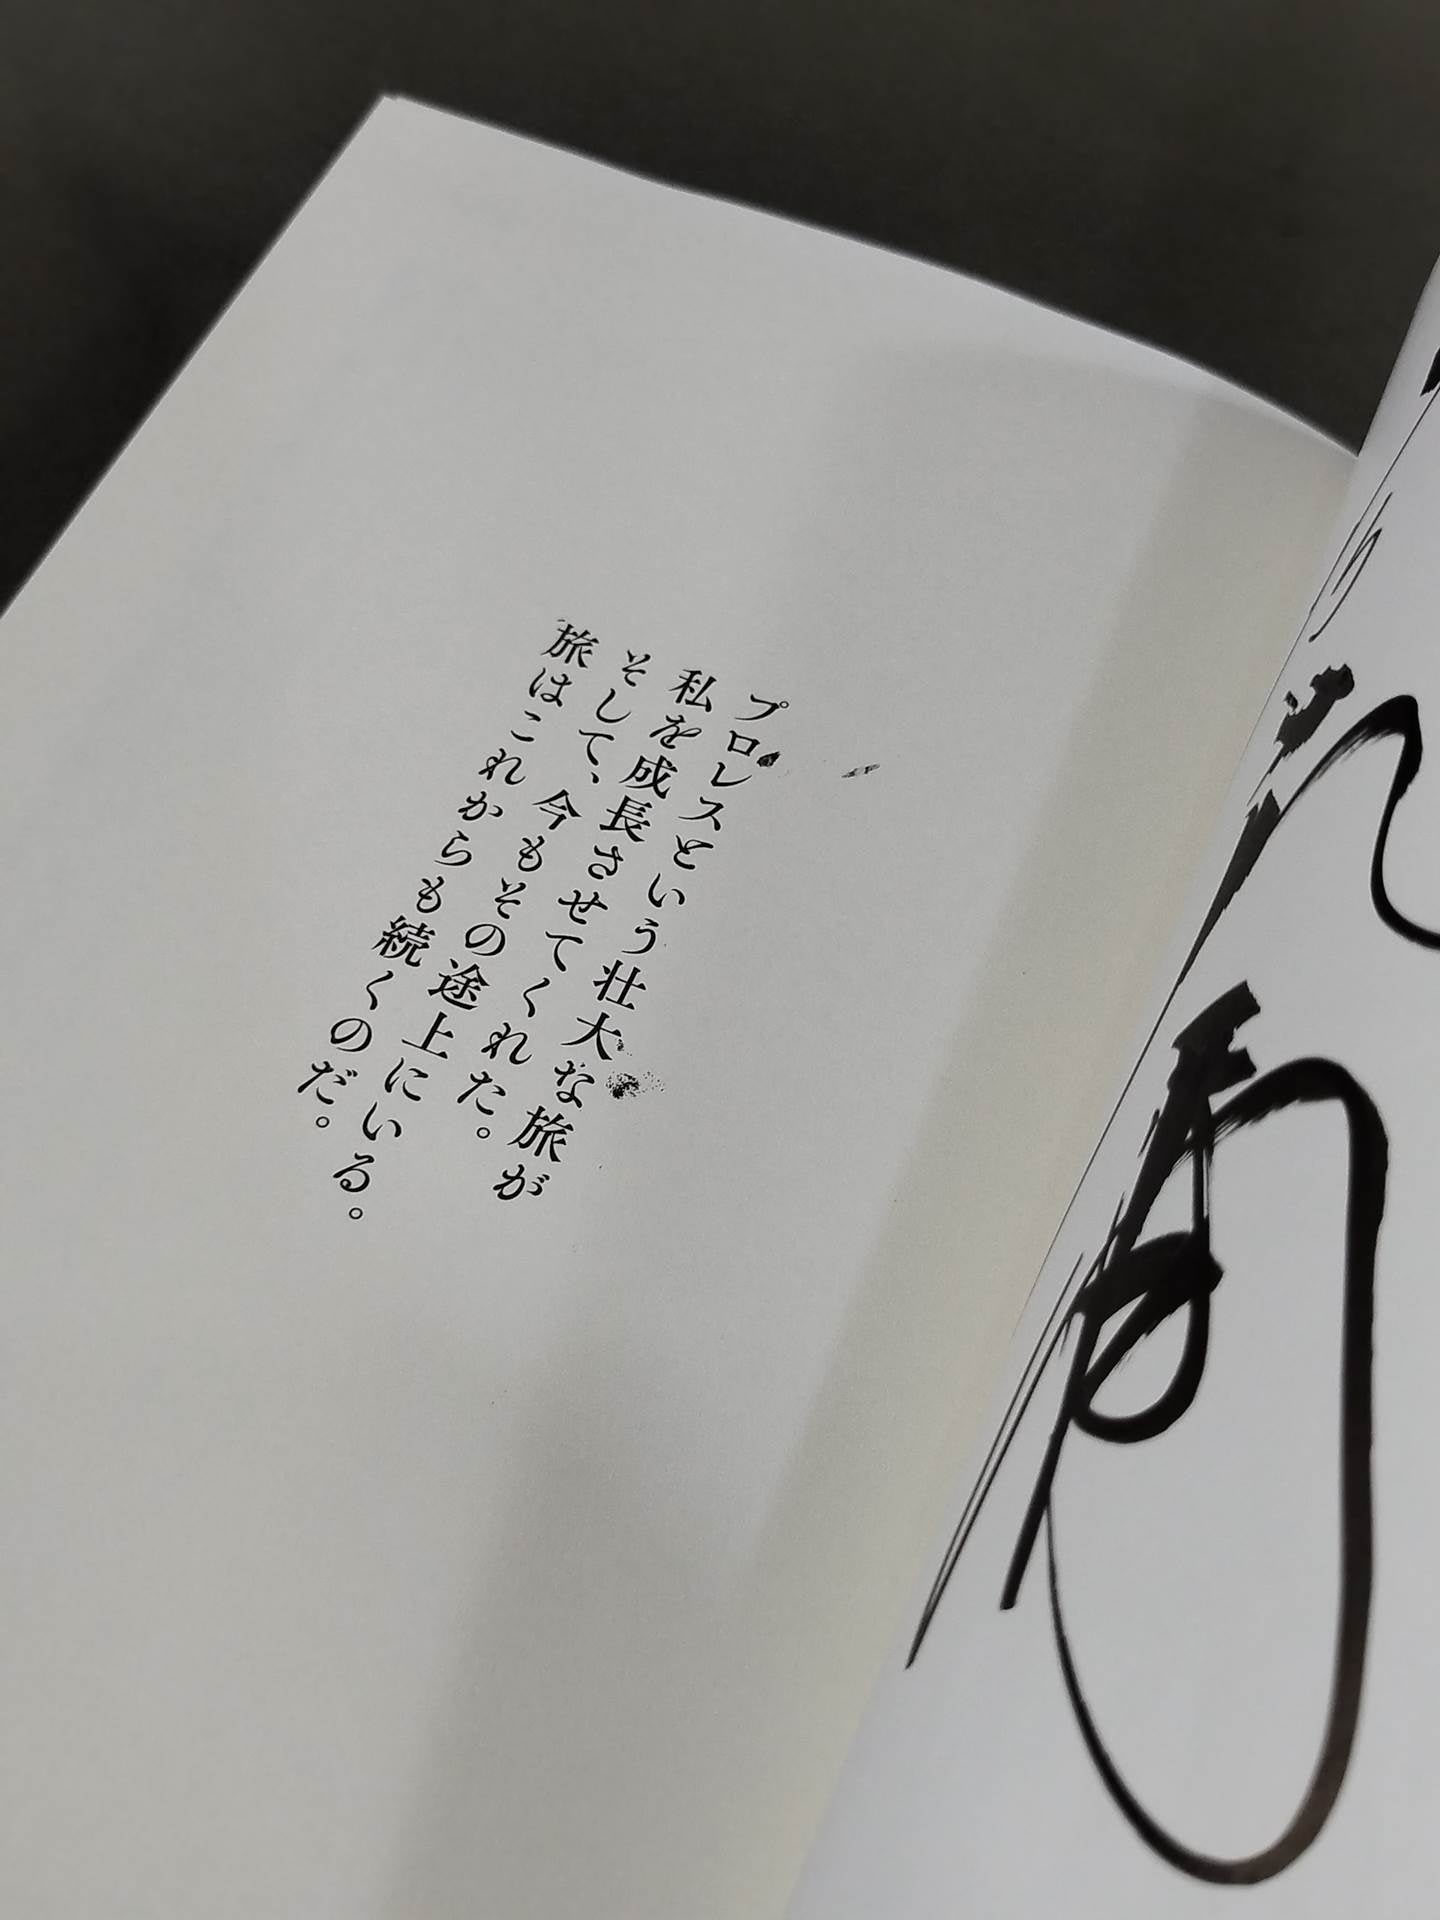 プロレスという壮大な旅が
私を成長させてくれた。
そして、今もその途上にいる。
旅はこれからも続くのだ。